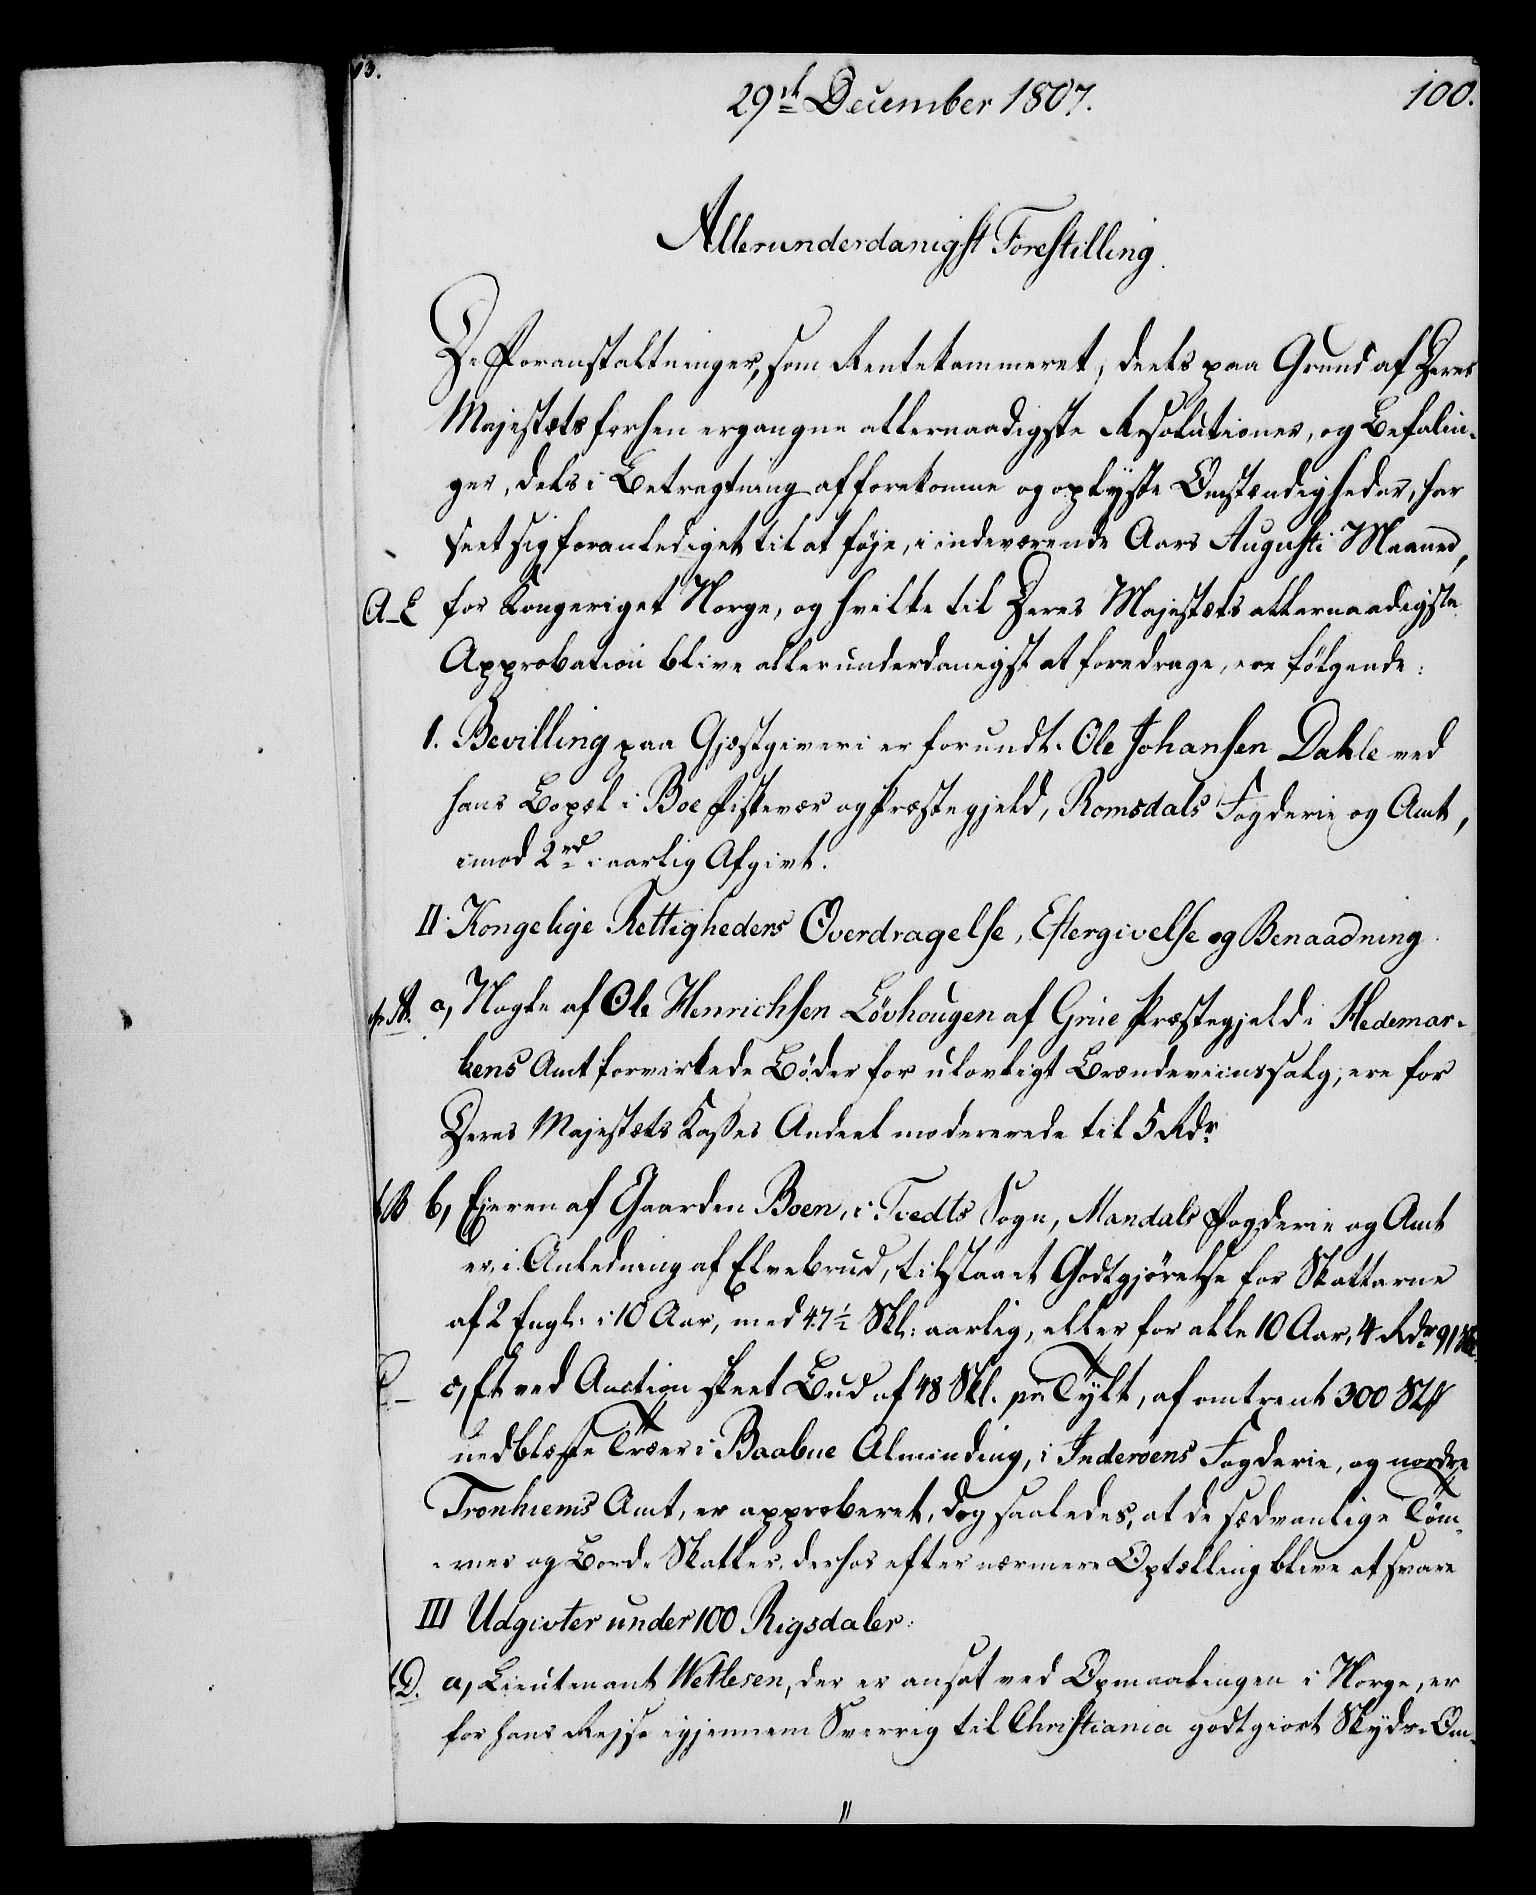 13.
29de December 1807.
100.
Allerunderdanigst Forestilling.
De Foranstaltninger, som Rentekammeret, deels paa Grund af Deres
Majestæts forhen ergangne allernaadigste Resolutioner, og Befalin-
ger, dels i Betragtning af forekomne og oplyste Omstændigheder, har
seet sig foranlediget til at föje, i indeværende Aars Augusti Maaned,
A-E for Kongeriget Norge, og hvilke til Deres Majestæts allernaadigste
Approbation blive allerunderdanigst at foredrage, ere fölgende:
1. Bevilling paa Gjæstgiveri er forundt. Ole Johansen Dahle ved
hans Bopæl i Boe Fiskevær og Præstegjeld, Romsdals Fogderie og Amt,
imod 2rd i aarlig Afgivt.
II. Kongelige Rettigheders Overdragelse, Eftergivelse og Benaadning
A. a, Nogle af Ole Henrichsen Lövhougen af Grue Præstegjeld i Hedemar-
kens Amt forvirkede Böder for ulovligt Brændeviinssalg, ere for
Deres Majestæts Kasses Andeel modererede til 5 Rdr
B b, Ejeren af Gaarden Boen, i Tvedts Sogn, Mandals Fogderie og Amt
er, i Anledning af Elvebrud, tilstaaet Godtgjörelse for Skatterne
af 2 Engl. i 10 Aar, med 47½ Skl: aarlig, eller for alle 10 Aar, 4 Rdr 91 Skl.
C.- c, Et ved Auction skeet Bud af 48 Skl. pr Tylt, af omtrent 300 Stk
nedblæste Træer i Baabue Alminding, i Inderöens Fogderie, og nordre
Tronhiems Amt, er approberet, dog saaledes, at de sædvanlige Töm-
mer og Borde Skatter, derhos efter nærmere Optælling blive at svare
III Udgivter under 100 Rigsdaler:
D. a, Lieutenant Wetlesen, der er ansat ved Opmaalingen i Norge, er
for hans Rejse igjennem Sverrig til Christiania godtgiort Skyds-Om-